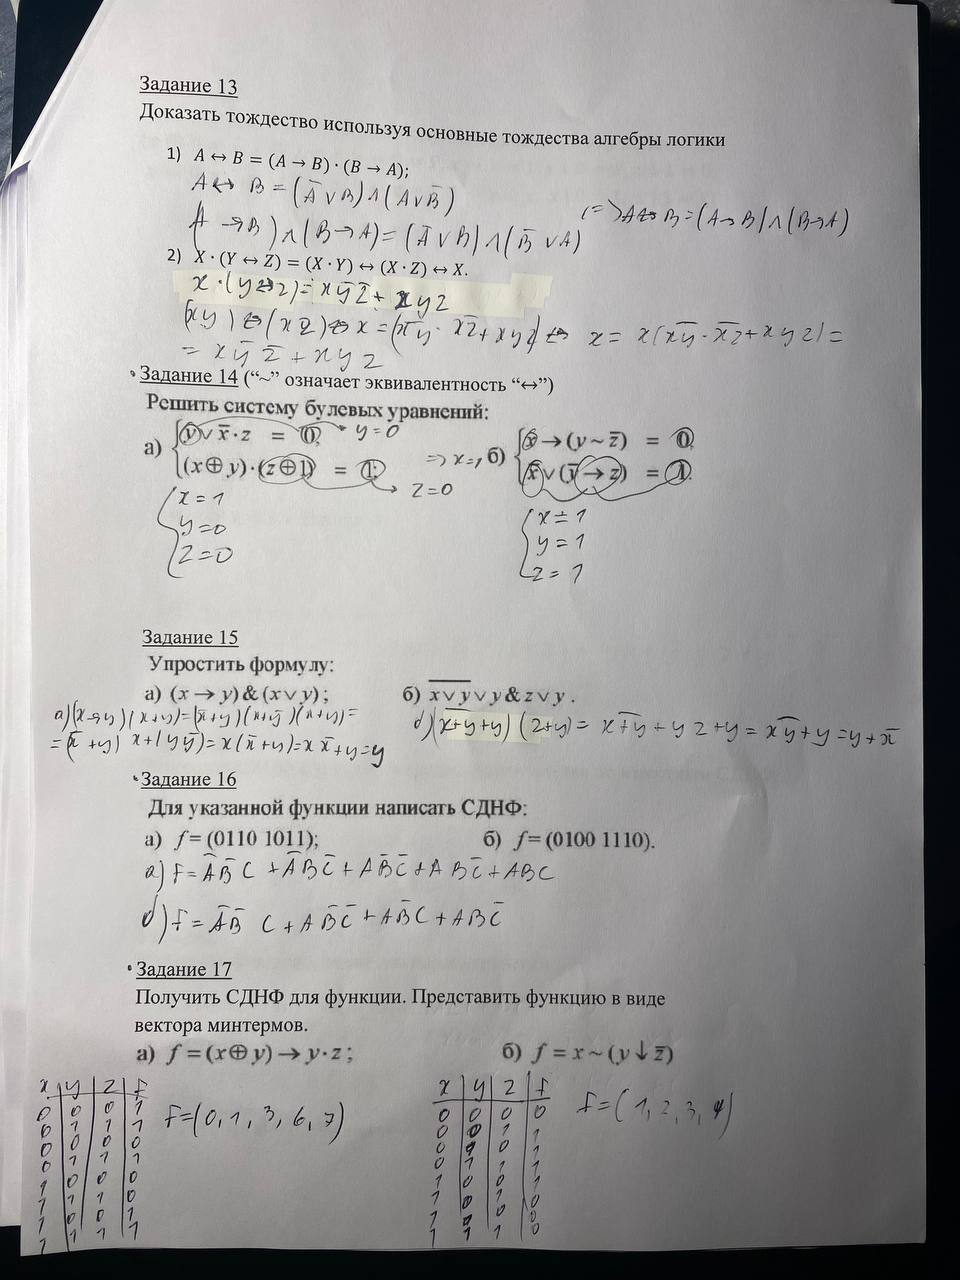 Задание 13
Доказать тождество используя основные тождества алгебры логики
1) A ↔ B = (A → B) · (B → A);
A ↔ B = (A̅ ∨ B) ∧ (A ∨ B̅)
(A → B) ∧ (B → A) = (A̅ ∨ B) ∧ (B̅ ∨ A) (=> A ↔ B = (A → B) ∧ (B → A)
2) X · (Y ↔ Z) = (X · Y) ↔ (X · Z) ↔ X.
x · (y ↔ z) = x y̅ z̅ + x y z
(xy) ⇔ (xz) ⇔ x = (x̅y̅ · x̅z̅ + xyz) ⇔ x = x(x̅y̅ · x̅z̅ + xyz) =
= x y̅ z̅ + x y z
Задание 14 (“~” означает эквивалентность “↔”)
Решить систему булевых уравнений:
а) { y ∨ x̅ · z = 0, y = 0
(x ⊕ y) · (z ⊕ 1) = 1; => x = 1, z = 0
{ x = 1
y = 0
z = 0
б) { x → (y ~ z̅) = 0,
x̅ ∨ (y̅ → z) = 1.
{ x = 1
y = 1
z = 1
Задание 15
Упростить формулу:
а) (x → y) & (x ∨ y); б) x̅ ̅∨̅ ̅y̅ ∨ y & z ∨ y .
= (x̅ + y) x + (y y̅) = x(x̅ + y) = x x̅ + y = y
Задание 16
Для указанной функции написать СДНФ:
а) f = (0110 1011); б) f = (0100 1110).
а) f = A̅ B̅ C + A̅ B C̅ + A B̅ C̅ + A B C̅ + A B C
б) f = A̅ B̅ C + A B̅ C̅ + A B̅ C + A B C̅
Задание 17
Получить СДНФ для функции. Представить функцию в виде
вектора минтермов.
а) f = (x ⊕ y) → y · z ; б) f = x ~ (y ↓ z̅)
x y z f
f = (0, 1, 3, 6, 7)
x y z f
f = (1, 2, 3, 4)